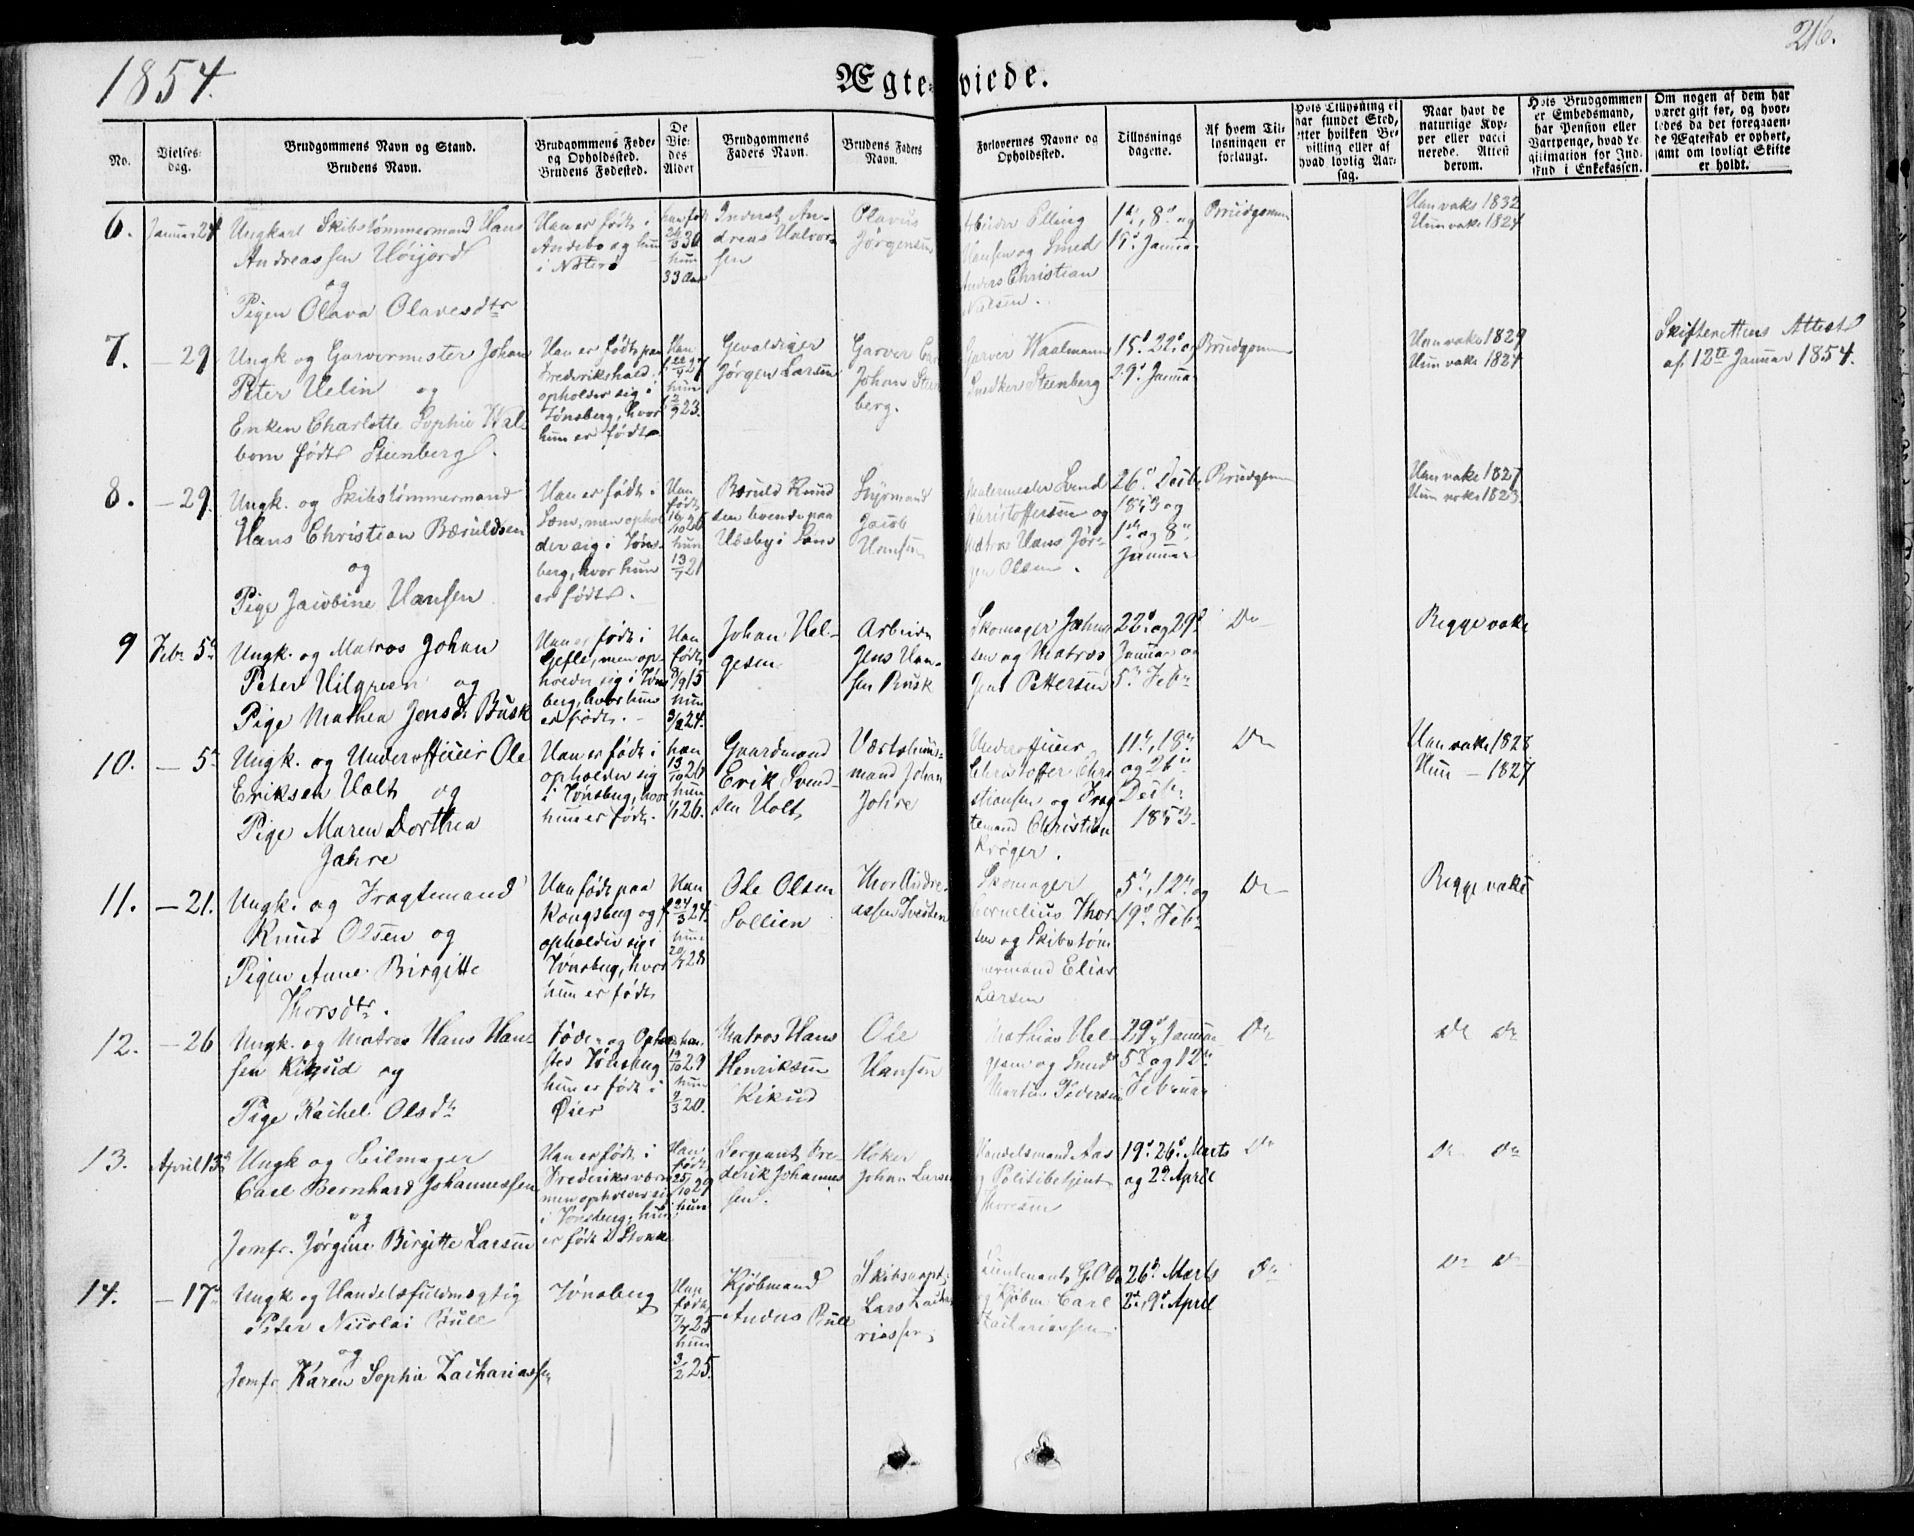 1854.
Ægteviede.
216.
No.
Vielsesdag.
Brudgommens Navn og Stand.
Brudens Navn.
Brudgommens Føde- og Opholdssted.
Brudens Fødested.
De Viedes Alder
Brudgommens Faders Navn.
Brudens Faders Navn.
Forlovernes Navne og Opholdssted.
Tillysningsdagene.
Af hvem Tillysningen er forlangt.
Hvis Tillysning ei har fundet Sted, efter hvilken Bevilling eller af hvad lovlig Aarsag.
Naar havt de naturlige Kopper eller vaccinerede. Attest derom.
Hvis Brudgommen er Embedsmand, har Pension eller Vartpenge, hvad Legitimation for Indskud i Enkekassen.
Om nogen af dem har været gift før, og hvorledes da det foregaaende Ægteskab er ophørt, samt om lovligt Skifte er holdt.
6.
Januar 24
Ungkarl Skibstømmermand Hans
Andreassen Høijord
og
Pigen Olava Olavesdtr
Han er født i
Andebo og hun
i Nøterø
han født
24/3 30
hun
33 Aar
Inderst An-
dreas Halvor-
sen
Olavus
Jørgensen
Arbeider Elling
Hansen og Smed
Anders Christian
Nilsen.
1de, 8de og
15de Januar
Brudgommen
Han vakc 1832
Hun vakc 1824
7.
— 29
Ungk og Garvermester Johan
Peter Velin og
Enken Charlotte Sophie Wal-
bom født Steenberg.
Han er født paa
Frederikshald.
opholder sig i
Tønsberg, hvor
hun er født
Han
22/4 27
hun
2/9 23.
Gevaldiger
Jørgen Larsen
Garver Carl
Johan Steen
berg.
Garver Waalmann
Snedker Steenberg
15d 22d og
29d Januar
Brudgommen
Han vakc 1829
Hun vakc 1824
Skifterettens Attest
af 12te Januar 1854.
8.
— 29.
Ungk. og Skibstømmermand
Hans Christian Bæruldsen
og
Pige Jacobine Hansen
Han er født i
Sem, men ophol
der sig i Tøns-
berg, hvor hun
er født.
Han
født
16/10 26
hun
13/7 21
Bæruld Knud
sen boende paa
Huseby i Sem
Styrmand
Jacob
Hansen
Malermester Svend
Christoffersen og
Matros Hans Jør-
gen Olsen.
26d Decbr
1853 og
1de og 8de
Januar
Brudgom
Han vakc 1827
Hun vakc 1823
9
Febr 5te
Ungk. og Matros Johan
Peter Hilgreen og
Pige Mathea Jensdr Busk
Han er født i
Gefle, men op-
holder sig i Tøns
berg, hvor hun
er født.
Han
født
9/9 15
hun
3/2 24.
Johan Hel-
gesen
Arbeider
Jens Han-
sen Busk
Skomager Johan
sen og Matros
Jens Pettersen
22d og 29d
Januar og
5te Febr
Do
Begge vakc
10.
— 5te
Ungk. og Underofficier Ole
Eriksen Holt og
Pige Maren Dorthea
Jahre
Han er født i
opholder sig
i Tønsberg, hvor
hun er født.
han
13/10 26
hun
1/1 26.
Gaardmand
Erik Svend-
sen Holt
Værtshuus-
mand Johan
Jahre
Underofficier
Christoffer Chri
stiansen og Frag
temand Christian
Krøger.
11te, 18de
og 26de
Decbr
1853
Do
Han vakc 1828
Hun — 1827
11.
— 21.
Ungk. og Fragtemand
Knud Olsen og
Pigen Anne Birgitte
Thorsdtr.
Han født paa
Kongsberg og
opholder sig i
Tønsberg, hvor
hun er født
Han
24/3 24.
hun
20/7 28
Ole Olsen
Sollien
Thor Andre-
assen
Skomager
Cornelius Thor
sen og Skibstøm
mermand Elias
Larsen
5te, 12te og
19d Febr
Do
Begge vakc
12.
— 26
Ungk. og Matros Hans Han-
sen Kikud og
Pige Rachel Olsdtr
Føde- og Ophol
sted Tønsberg
hun er født i
Øier
han
19/10 29
hun
2/3 20.
Matros Hans
Henriksen
Kikud
Ole
Hansen
Mathias Hel-
gesen og Smed
Martin Pedersen
29d Januar
5te og 12te
Februar
Do
do do
13.
April 13d
Ungk og Seilmager
Carl Bernhard Johannessen
og
Jomfr. Jørgine Birgitte Larsen
Han er født i
Frederiksværn
men opholder sig
i Tønsberg, hun
er født i Stokke
Han
født
25/10 29
hun
Sergeant Fre-
derik Johannes
sen.
Høker
Johan Larsen
Handelsmand Aas
og Politibetjent
Thoresen
19d 26d Marts
og 2d April
Do
do do
14.
— 17de
Ungk og Handelsfuldmægtig
Peter Nicolai Bull
og
Jomfr Karen Sophie Zachariassen
Tønsberg
Han
født
7/7 25
hun
3/2 25.
Kjøbmand
Anders Bull
Skibscapt.
Lars Zacha
riassen
og Kjøbm Carl
Zachariassen
26d Marts
2d, 9d April
Do
do do